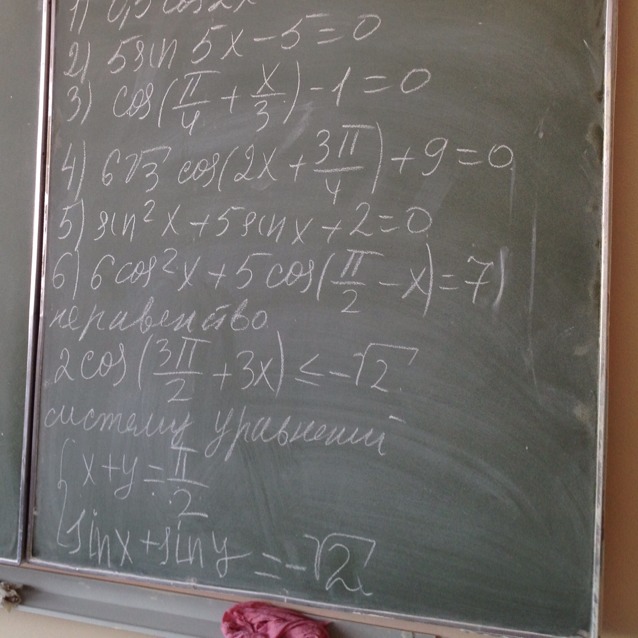 2) 5sin 5x - 5 = 0
3) cos(π/4 + x/3) - 1 = 0
4) 6√3 cos(2x + 3π/4) + 9 = 0
5) sin²x + 5sinx + 2 = 0
6) 6cos²x + 5cos(π/2 - x) = 7)
неравенство
2cos(3π/2 + 3x) ≤ -√2
систему уравнений
{ x + y = π/2
sinx + siny = -√2